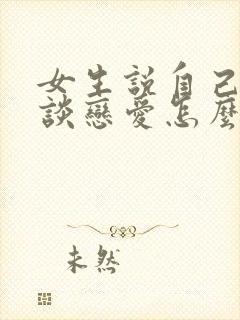 女生說自己
談戀愛怎麼
未然